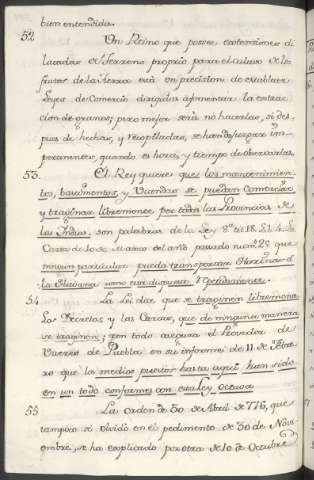 bien entendida.
52 Un Reino que posee extensiones di
latadas de terreno proprio para el cultivo de los
frutos de la tierra está en precision de establecer
Leyes de Comercio dirigidas a fomentar la extrac
cion de granos; pero mejor será no hacerlas, si des-
pues de hechas, y recopiladas, se han de juzgar im-
pertinentes, quando es hora, y tiempo de observarlas.
53. El Rey quiere que los mantenimien-
tos, bastimentos, y viandas se puedan comerciar
y traginar libremente por todas las Provincias de
las Indias. son palabras de la Ley 8ª tit. 18. Lib. 4. La
Carta de 10 de Marzo del año pasado num. 22 que
ningun particular pueda transportar Harinas á
la Habana como esta dispuesto.
54 La Ley dice que se traginen libremente
Las Decretas y las Cartas, que de ninguna manera
se traginen; con todo asegura el Proveedor de
Viveres de Puebla en su informe de 11 de Febre
ro que los medios puestos hasta aquí han sido
en un todo conformes con esta ley octava
55 La orden de 30 de Abril de 776, que
tampoco se olvidó en el pedimento de 30 de Novi
embre, se ha explicado por otra de 10 de Octubre